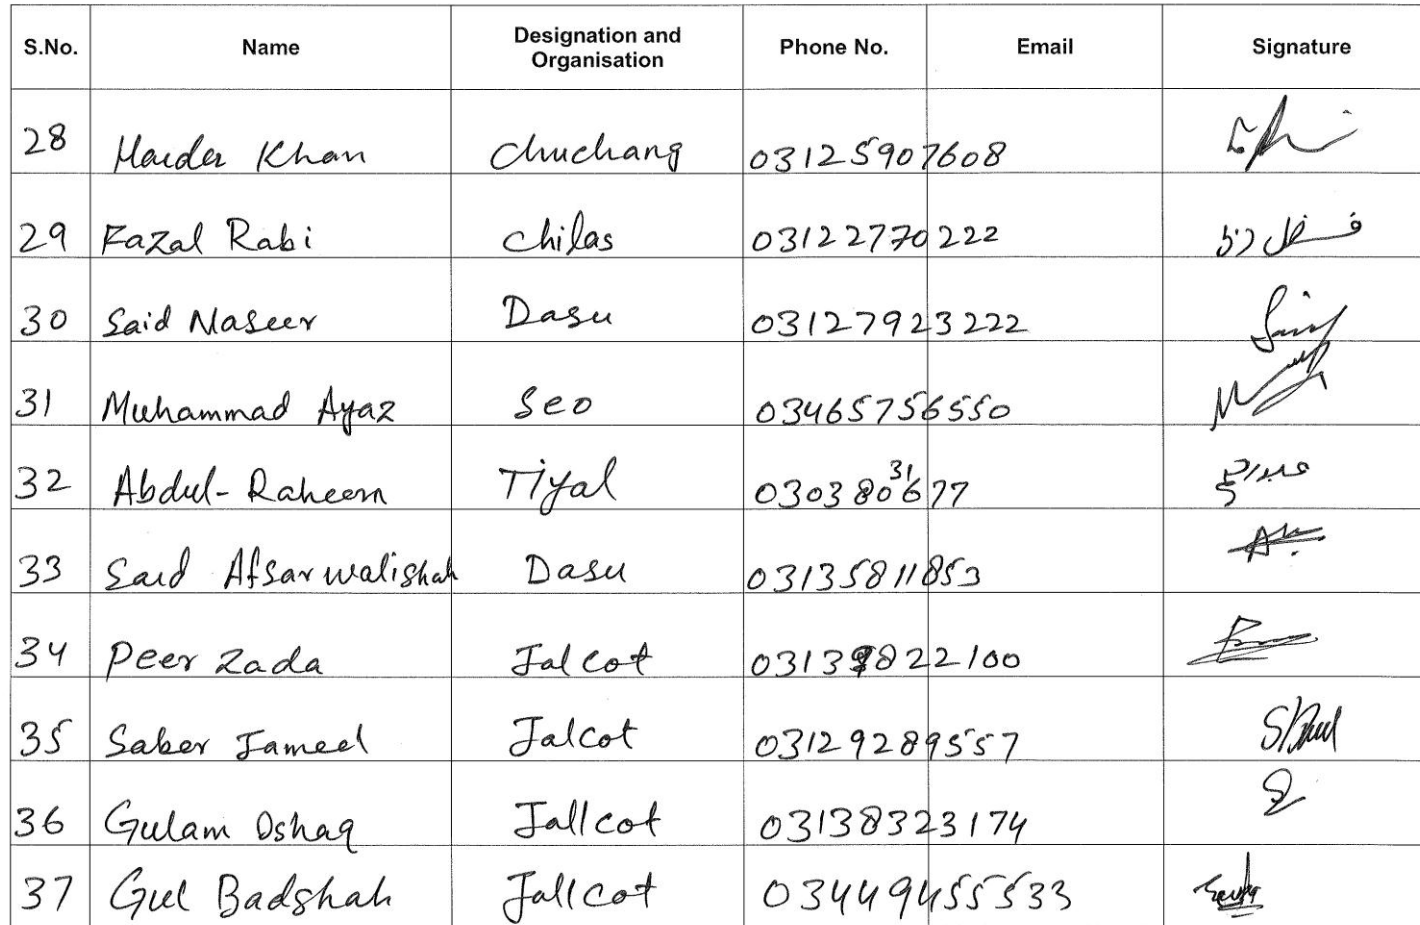 S.No. Name Designation and Organisation Phone No. Email Signature
28 Haider Khan Chuchang 03125907608
29 Fazal Rabi Chilas 03122770222 فضل ربی
30 Said Naseer Dasu 03127923222
31 Muhammad Ayaz Seo 03465756550
32 Abdul-Raheem Tiyal 03038031677
33 Said Afsarwalishah Dasu 03135811853
34 Peer Zada Jalcot
35 Saber Jameel Jalcot 03129289557
36 Gulam Oshaq Jallcot 03138323174
37 Gul Badshah Jallcot 03449455533